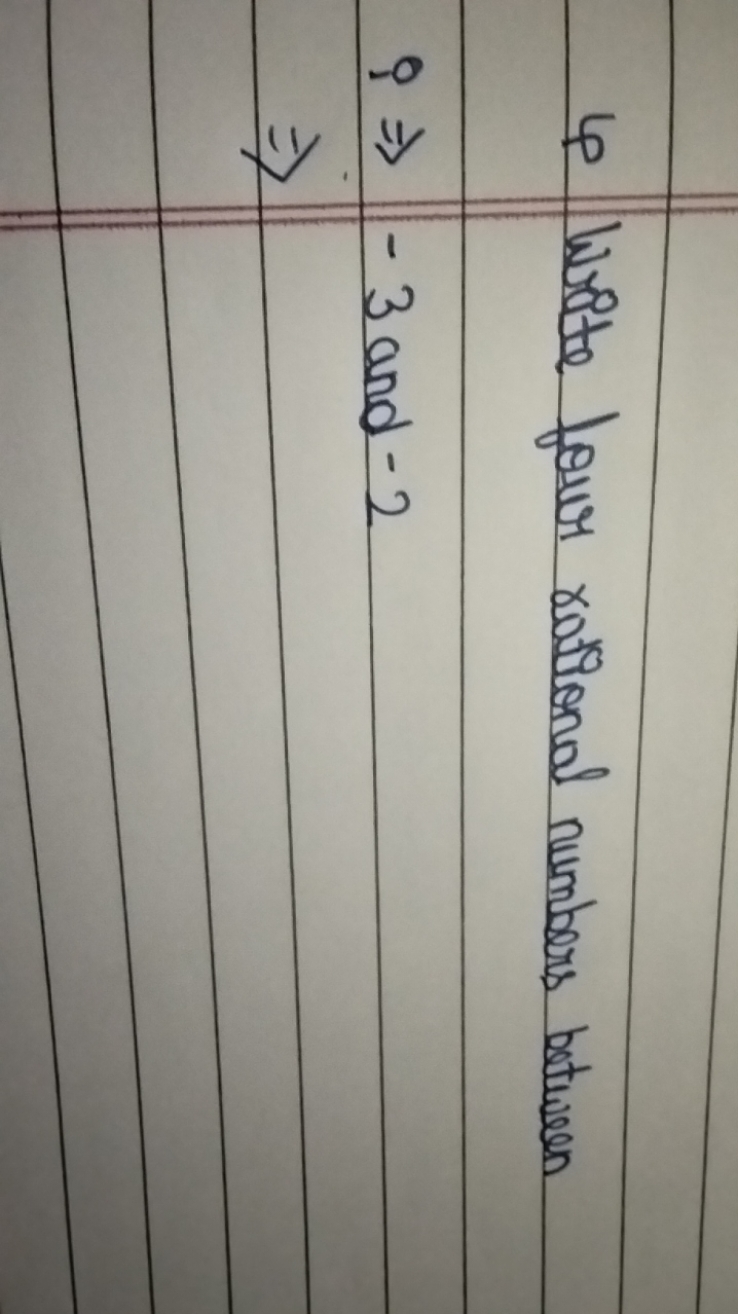 4 Write four rational numbers between
i ⇒ - 3 and - 2
⇒